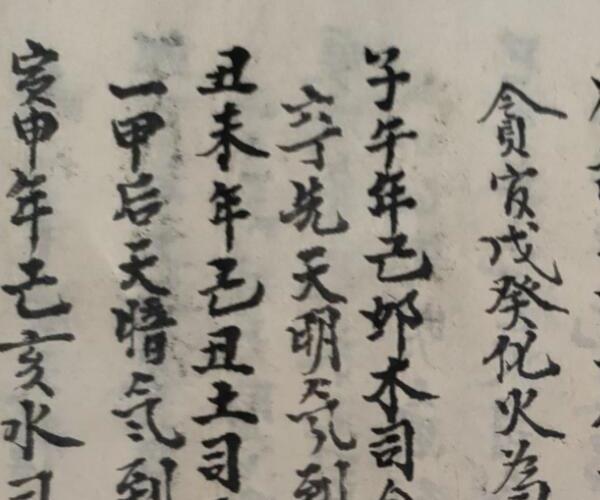 貪宜戊癸化火為
子午年己卯木司
六丁先天明氣到
丑未年己丑土司
一甲后天暗氣到
寅申年己亥水司